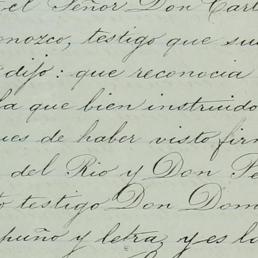 el Señor Don Carl
onozco, testigo que su
dijo: que reconocia
la que bien instruido
ues de haber visto firm
del Rio y Don Pe
testigo Don Dom
puño y letra, y es la